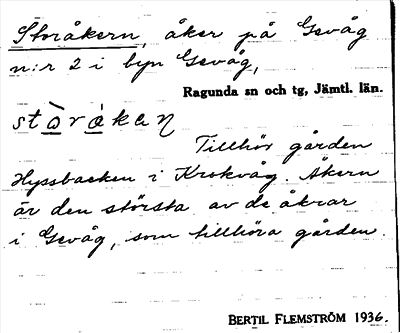 Storåkern, åker på Gevåg
n:r 2 i byn Gevåg,
Ragunda sn och tg, Jämtl. län.
stòràkeṇ
Tillhör gården
Hyssbacken i Krokvåg. Åkern
är den största av de åkrar
i Gevåg, som tillhöra gården.
BERTIL FLEMSTRÖM 1936.